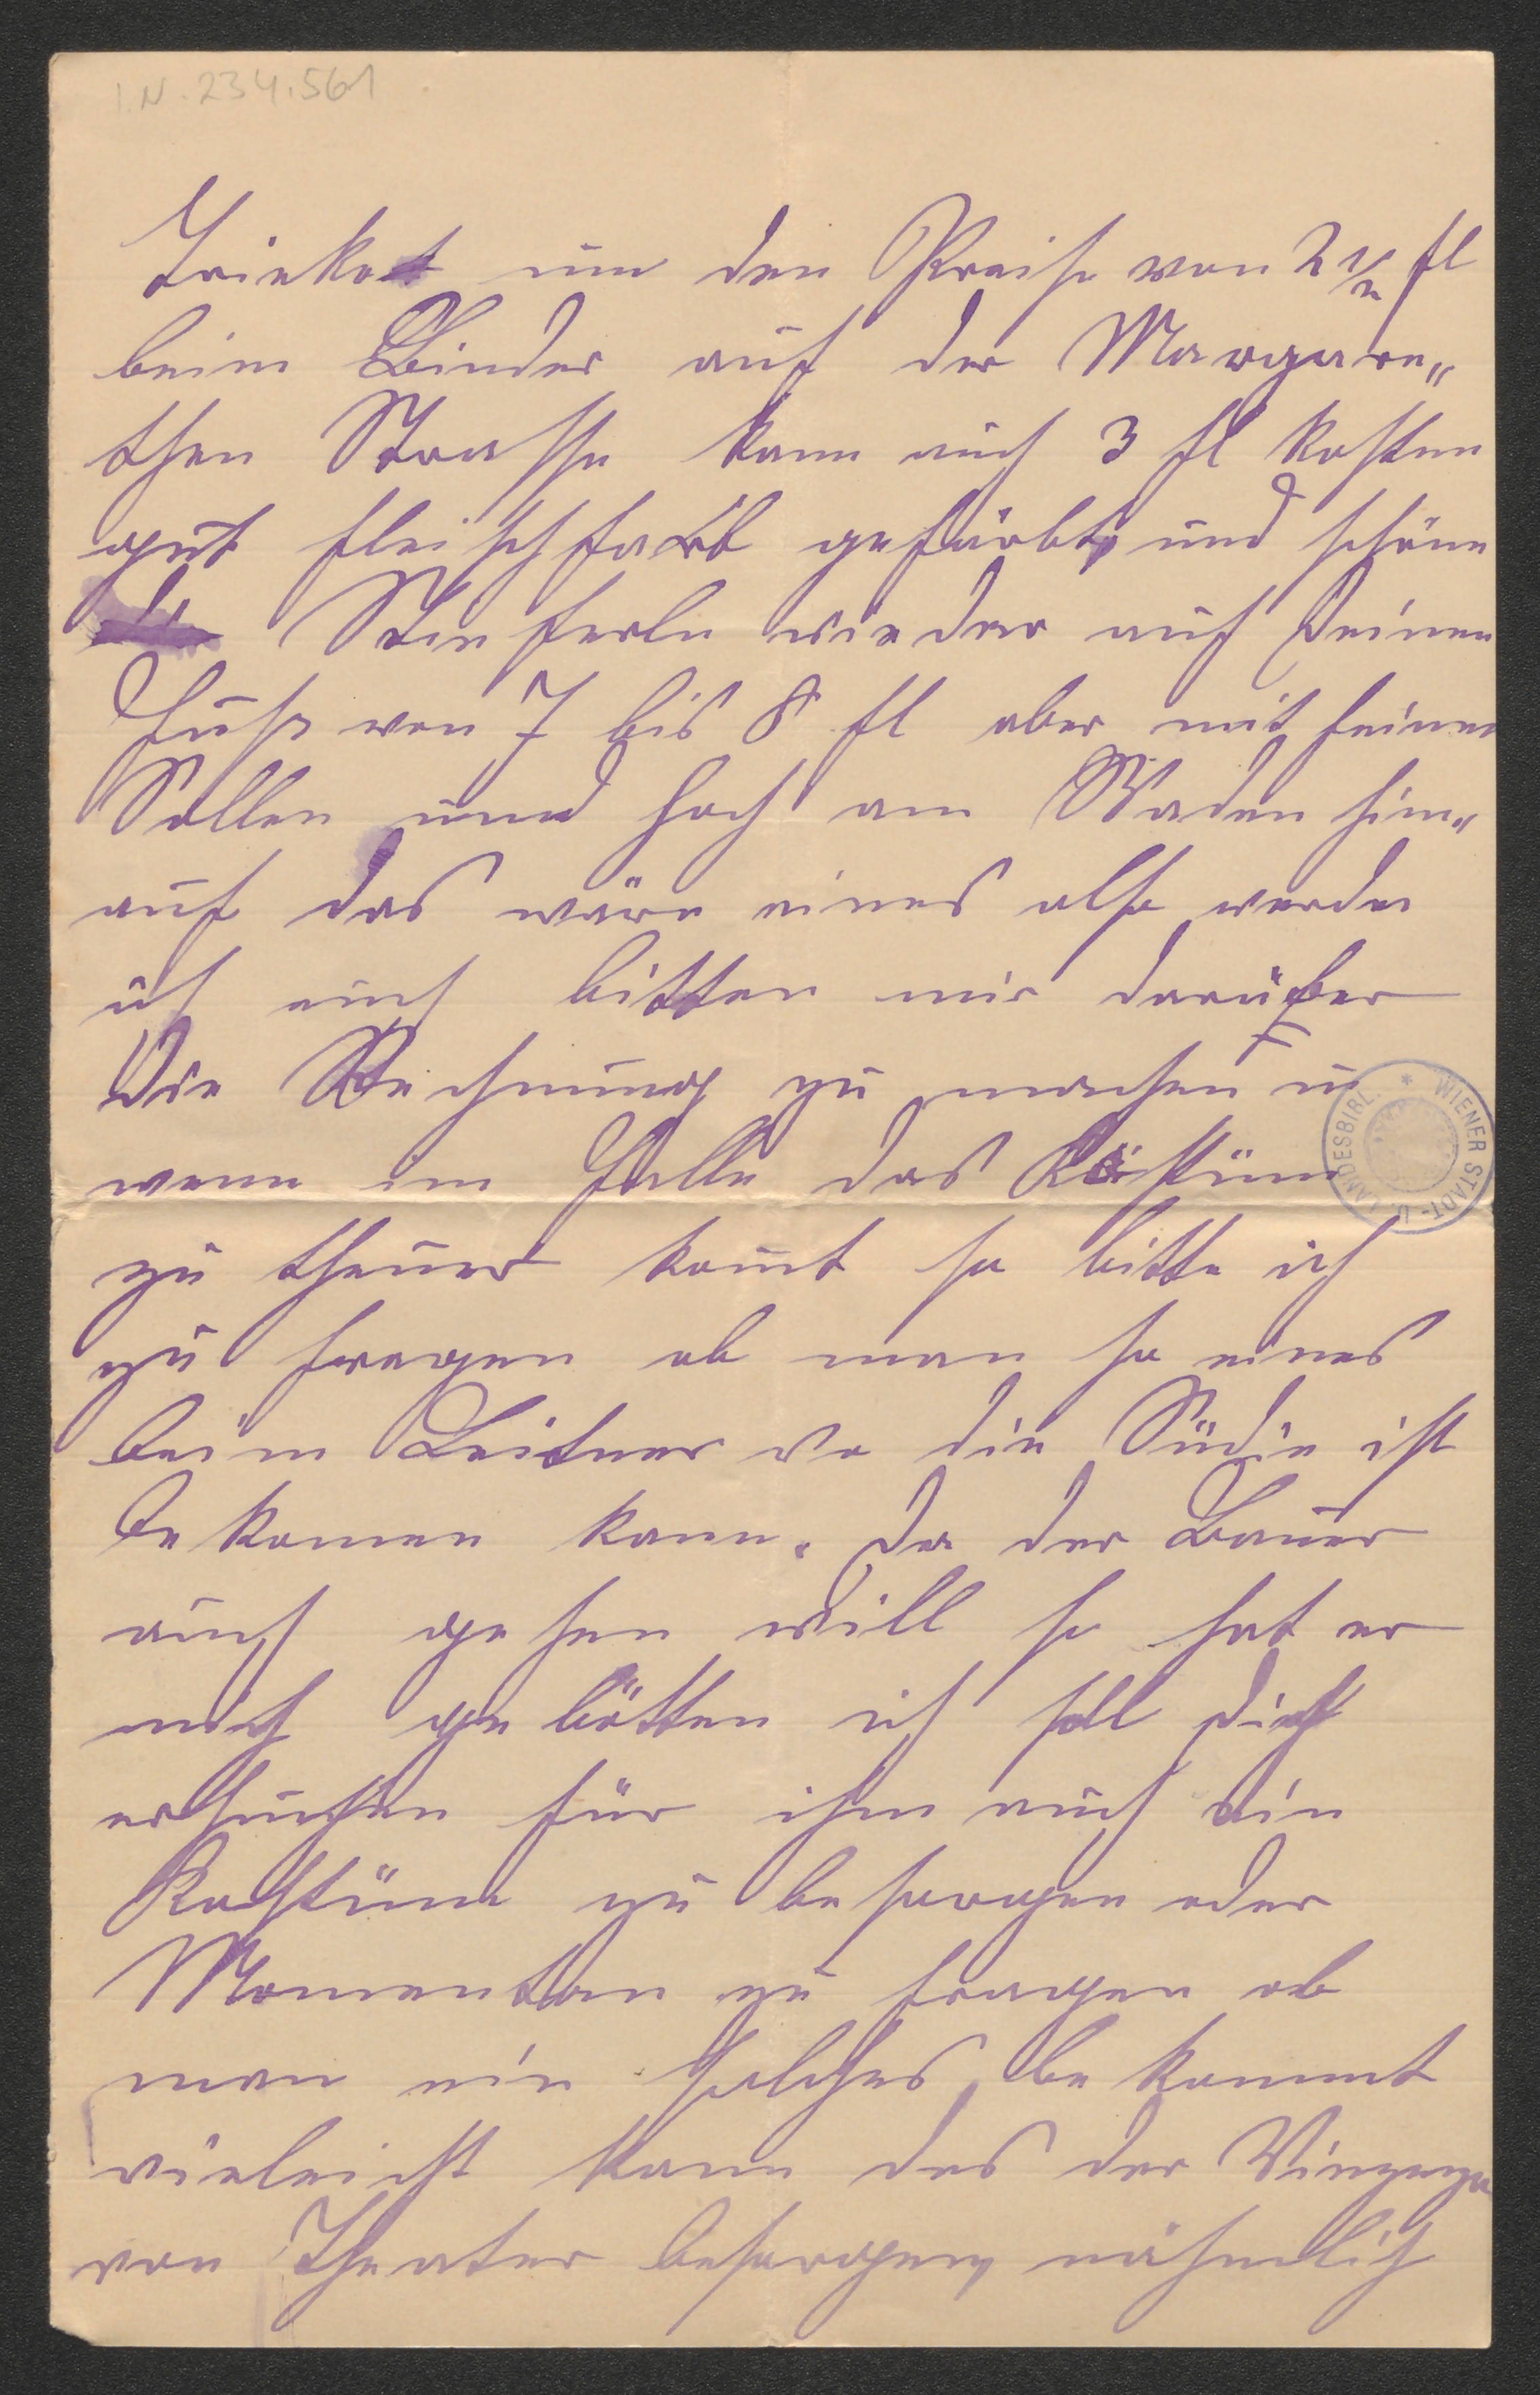 I.N. 234.561
Triekot um den Preise von 2 1/2 fl
beim Binder auf der Margare„
then Strasse kann auch 3 fl kosten
gut fleischfarb gefärbt, und schöne
Stieferln wieder auf Deinen
Fuß von 7 bis 8 fl aber mit feinen
Sollen und hoch am Waden hin„
auf das wäre eines also werde
ich auch bitten mir darüber
Die Rechnung zu machen u
wenn im Falle das Kostüm
zu theuer komt so bitte ich
zu fragen ob man so eines
beim Leitner wo die Südie ist
bekomen kann. Da der Bauer
auch gehen will so hat er
mich gebötten ich soll dich
ersuchen für ihm auch ein
Kostüm zu besorgen oder
Momentan zu fragen ob
man ein solches bekommt
vieleicht kann das der Vinzenz
von Theater besorgen, nähmlich
WIENER STADT- U. LANDESBIBL. *